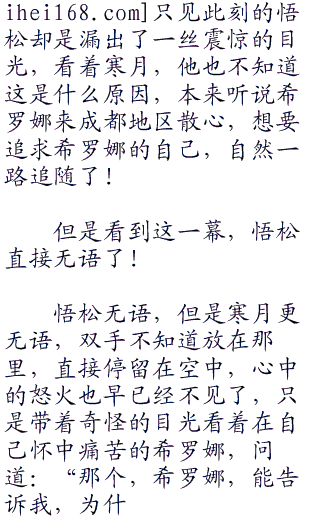 ihei168.com]只见此刻的悟
松却是漏出了一丝震惊的目
光，看着寒月，他也不知道
这是什么原因，本来听说希
罗娜来成都地区散心，想要
追求希罗娜的自己，自然一
路追随了！
但是看到这一幕，悟松
直接无语了！
悟松无语，但是寒月更
无语，双手不知道放在那
里，直接停留在空中，心中
的怒火也早已经不见了，只
是带着奇怪的目光看着在自
己怀中痛苦的希罗娜，问
道：“那个，希罗娜，能告
诉我，为什